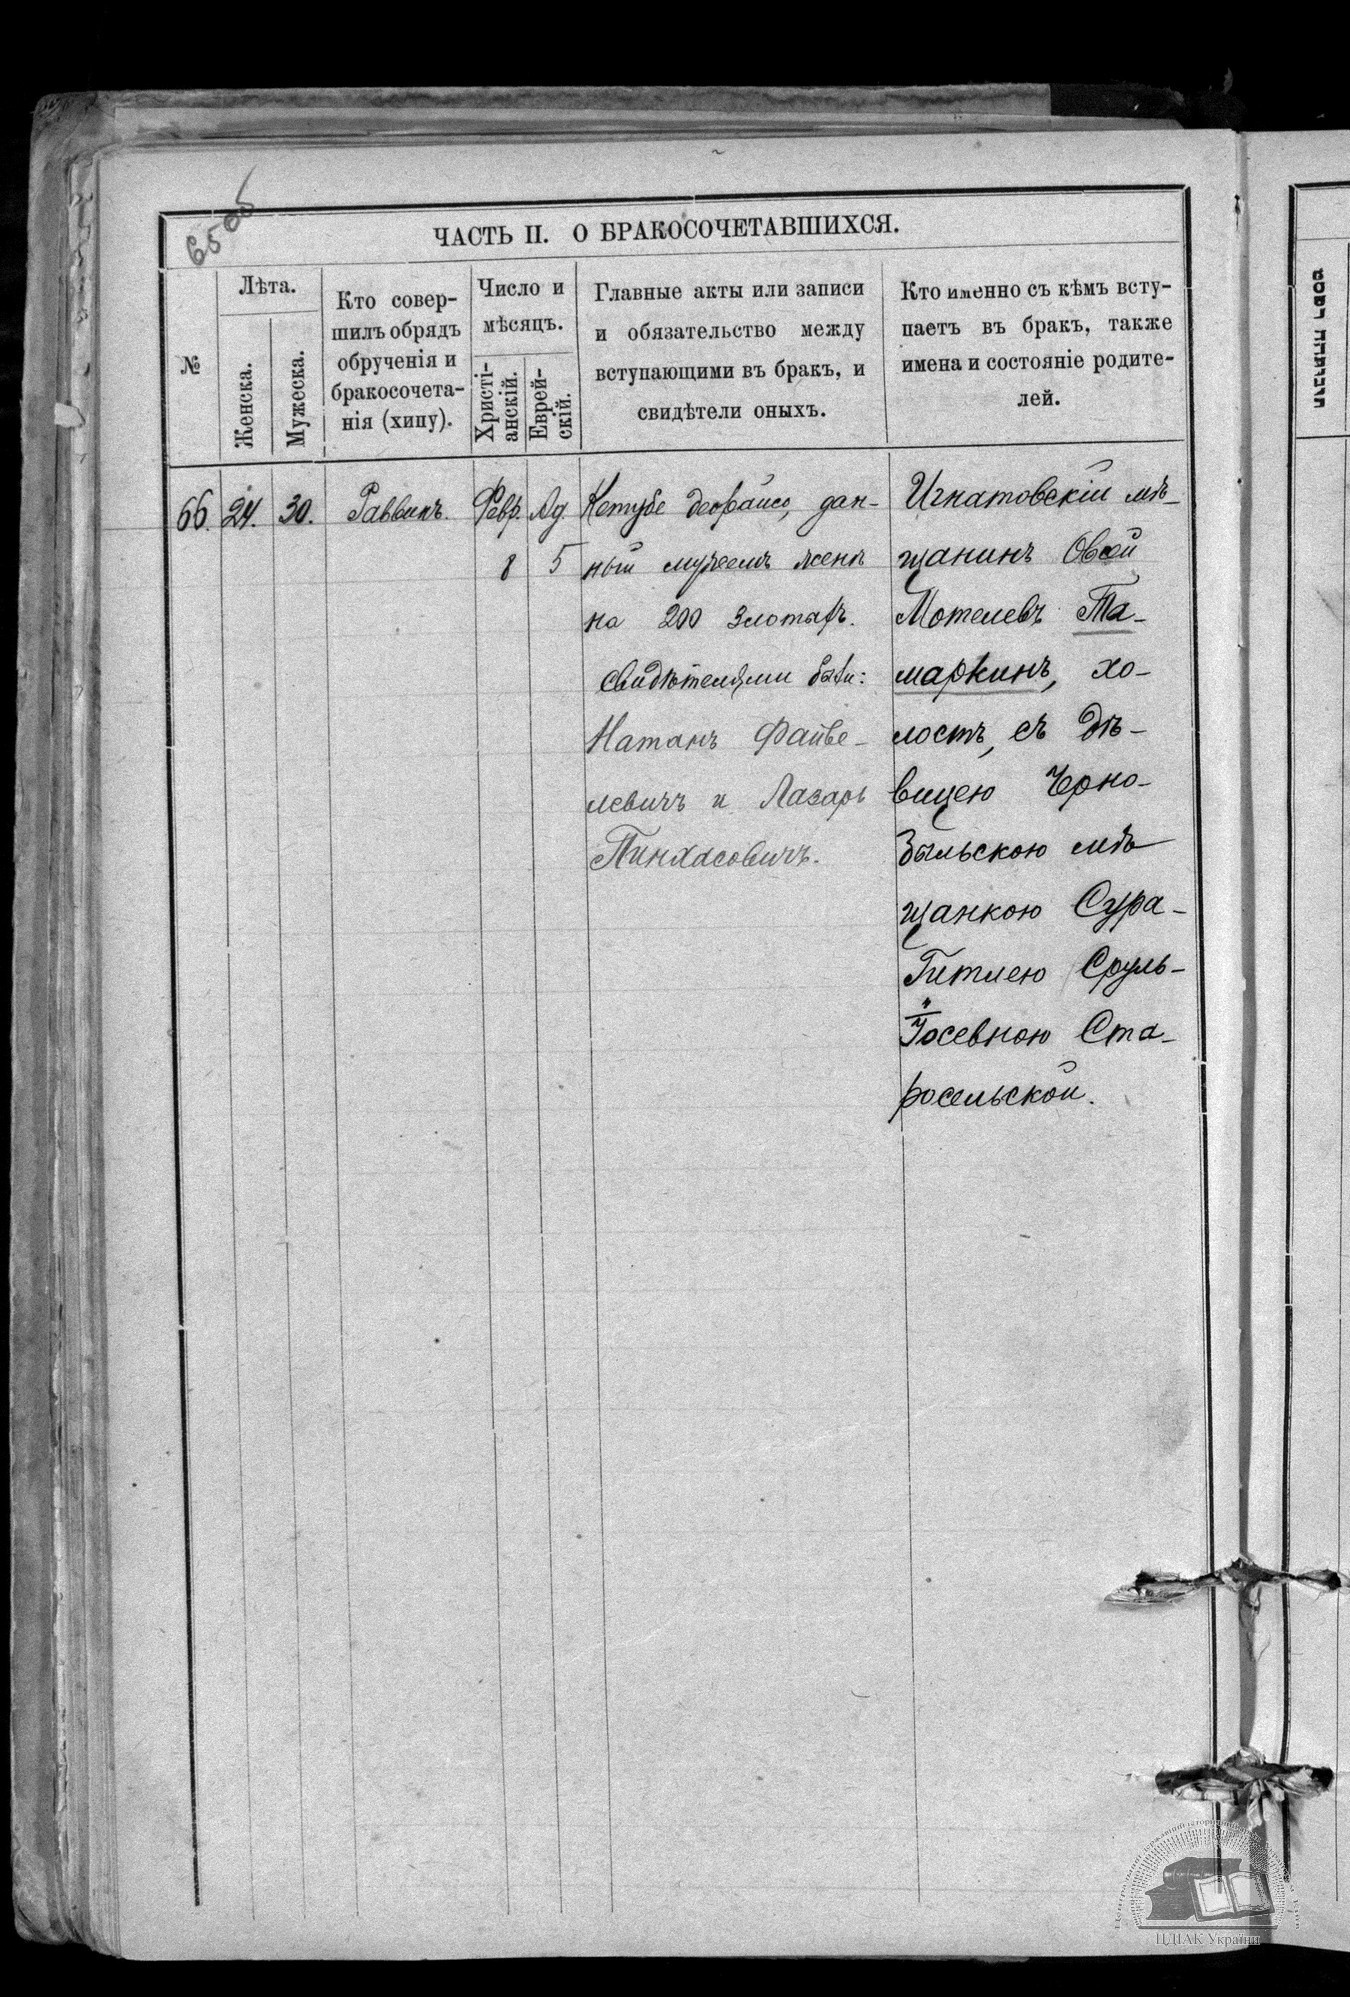 65об
ЧАСТЬ II. О БРАКОСОЧЕТАВШИХСЯ.
№
Лѣта.
Женска.
Мужеска.
Кто совер-
шилъ обрядъ
обрученія и
бракосочета-
нія (хипу).
Число и
мѣсяцъ.
Христі-
анскій.
Еврей-
скій.
Главные акты или записи
и обязательство между
вступающими въ бракъ, и
свидѣтели оныхъ.
Кто именно съ кѣмъ всту-
паетъ въ бракъ, также
имена и состояніе родите-
лей.
66. 24. 30. Раввинъ. Февр. Ад.
8 5
Кетубе деорайсо, дан-
ный мужемъ женѣ
на 200 злотыхъ.
Свидѣтелями были:
Натанъ Файве-
левичъ и Лазарь
Пинхасовичъ.
Игнатовскій мѣ-
щанинъ Овсей
Мотелевъ Та-
маркинъ, хо-
лостъ, съ дѣ-
вицею Черно-
быльскою мѣ-
щанкою Сура-
Гитлею Сруль-
Іосевною Ста-
росельской.
ЦДІАК України